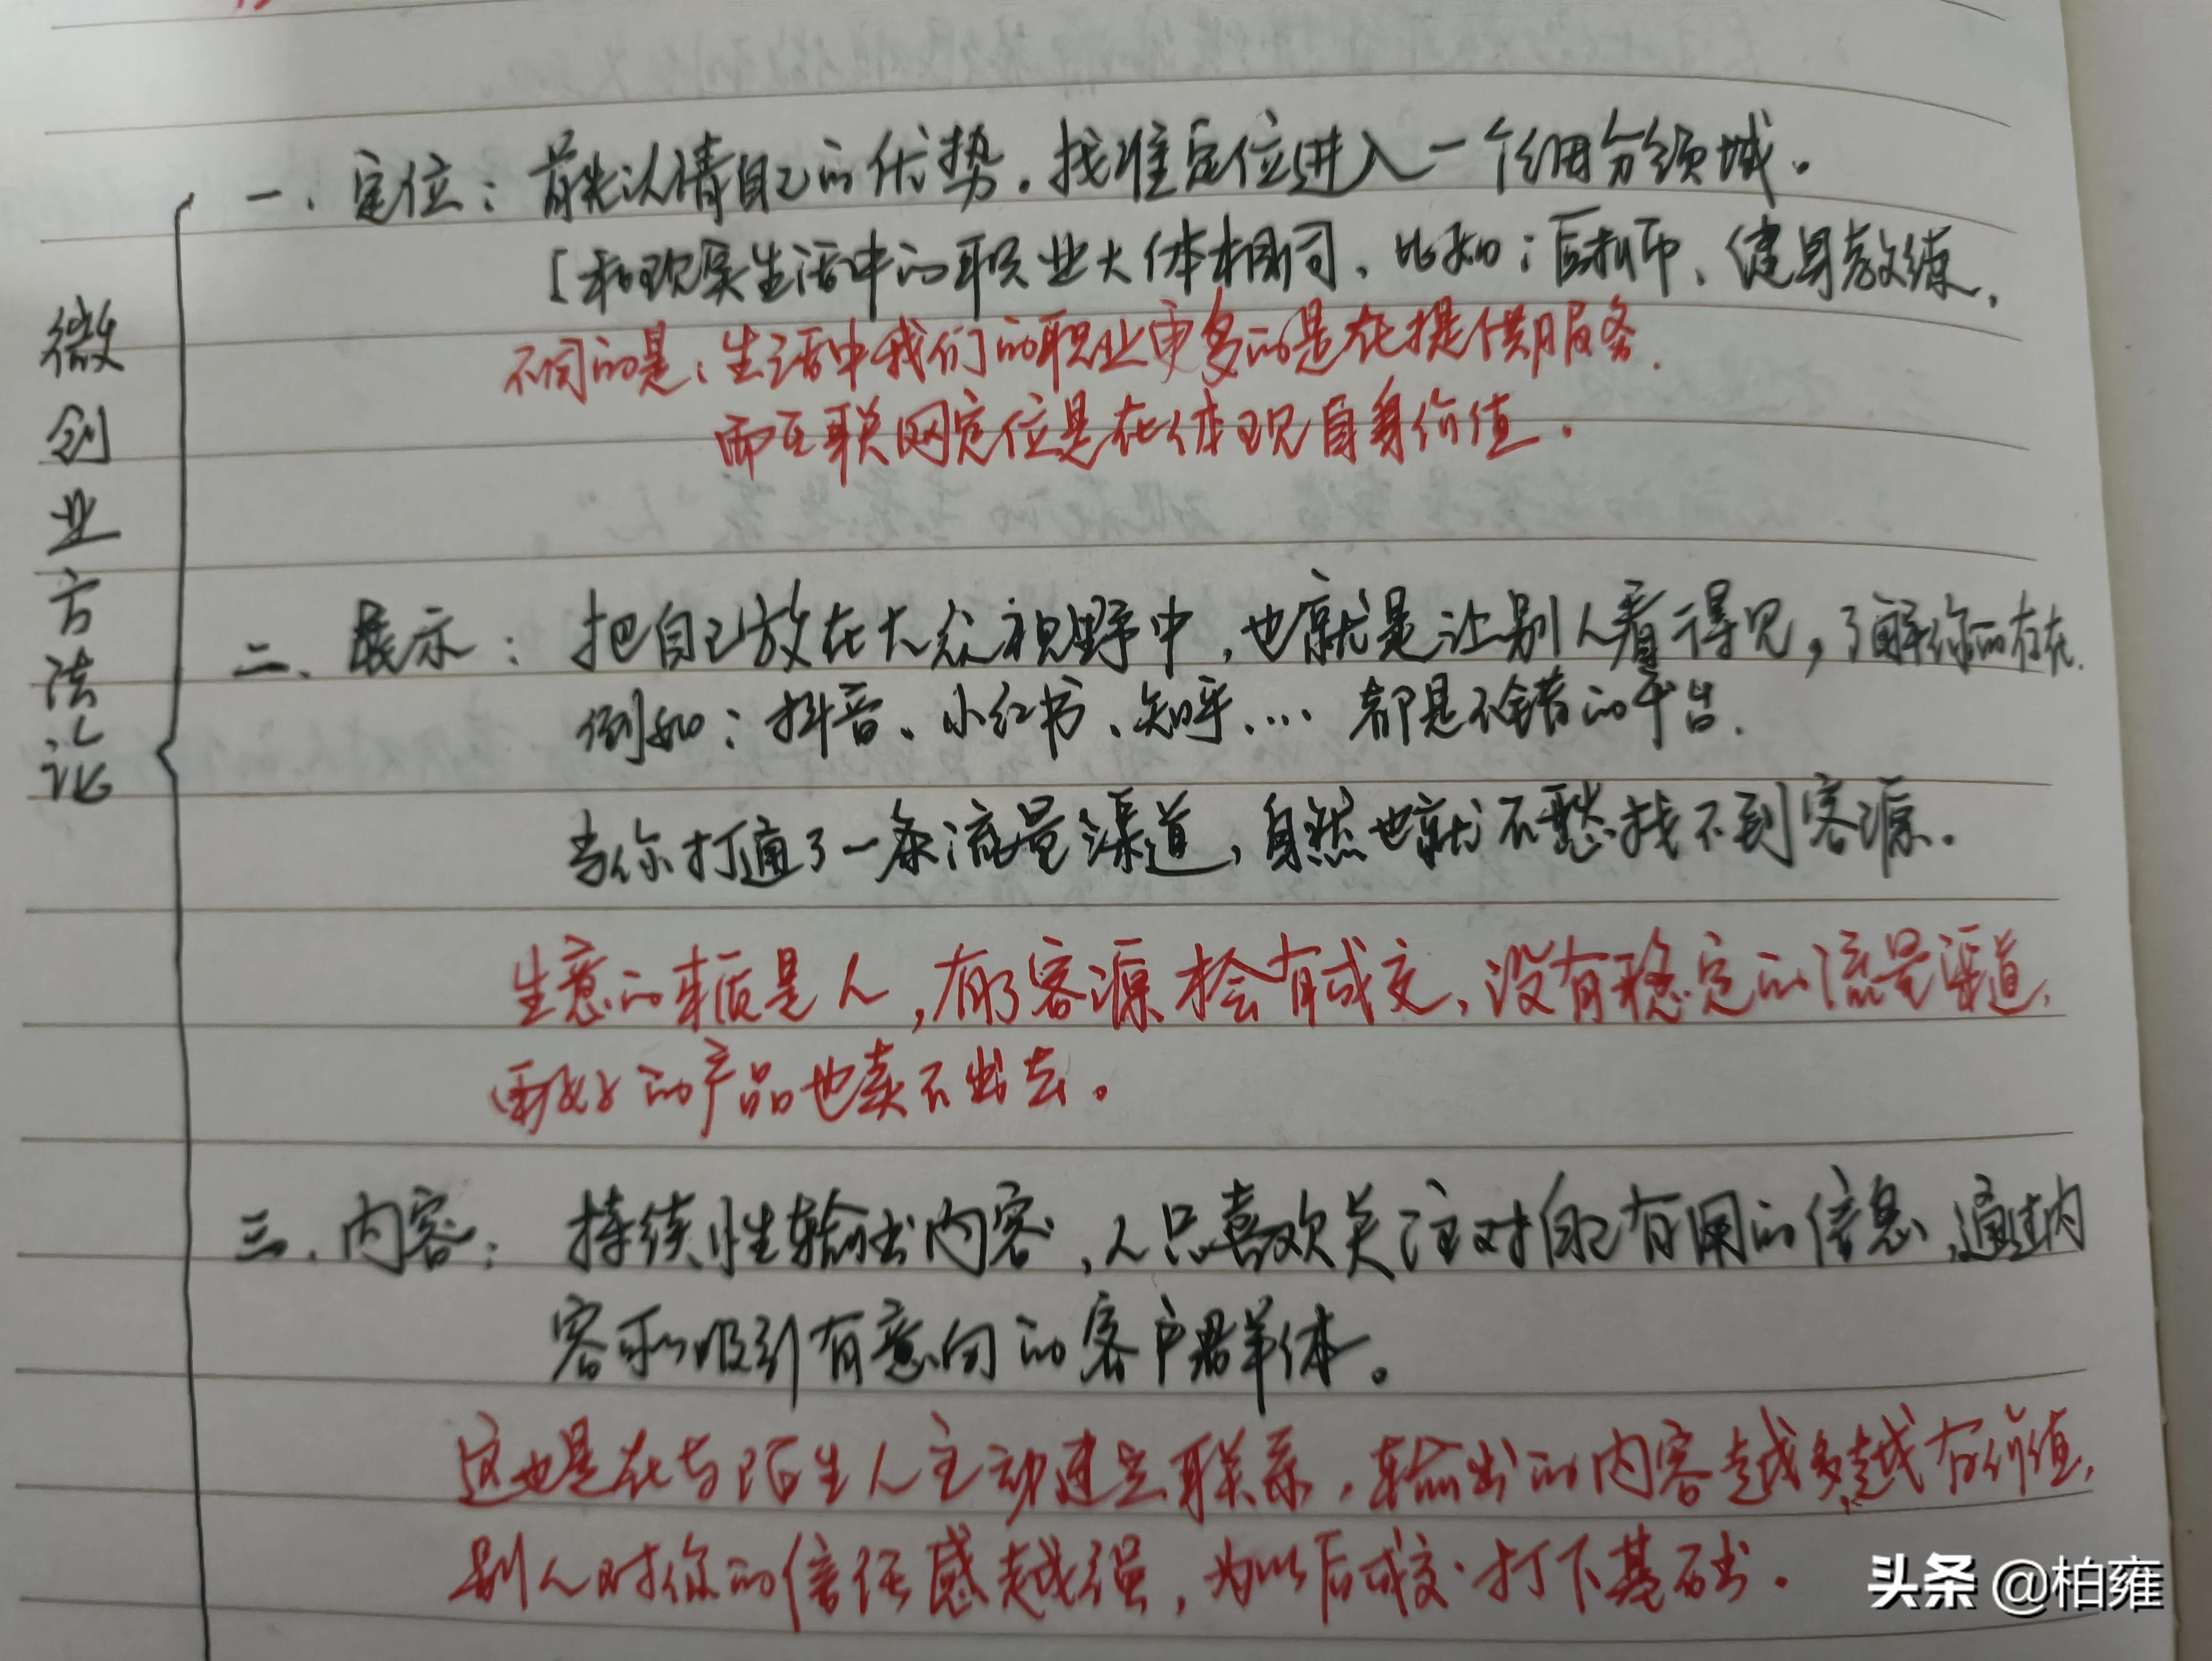 微创业方法论
一、定位：首先认清自己的优势。找准定位进入一个细分领域。
[和现实生活中的职业大体相同，比如：医师、健身教练，
不同的是：生活中我们的职业更多的是在提供服务.
而互联网定位是在体现自身价值。
二、展示：把自己放在大众视野中，也就是让别人看得见，了解你的存在.
例如：抖音、小红书、知乎、… 都是不错的平台.
当你打通了一条流量渠道，自然也就不愁找不到客源。
生意的本质是人，有了客源才会有成交，没有稳定的流量渠道，
再好的产品也卖不出去。
三、内容：持续性输出内容，人只喜欢关注对自己有用的信息，通过内
容可以吸引有意向的客户群体。
这也是在与陌生人主动建立联系，输出的内容越多越有价值，
别人对你的信任感越强，为以后成交打下基础。
头条 @柏雍